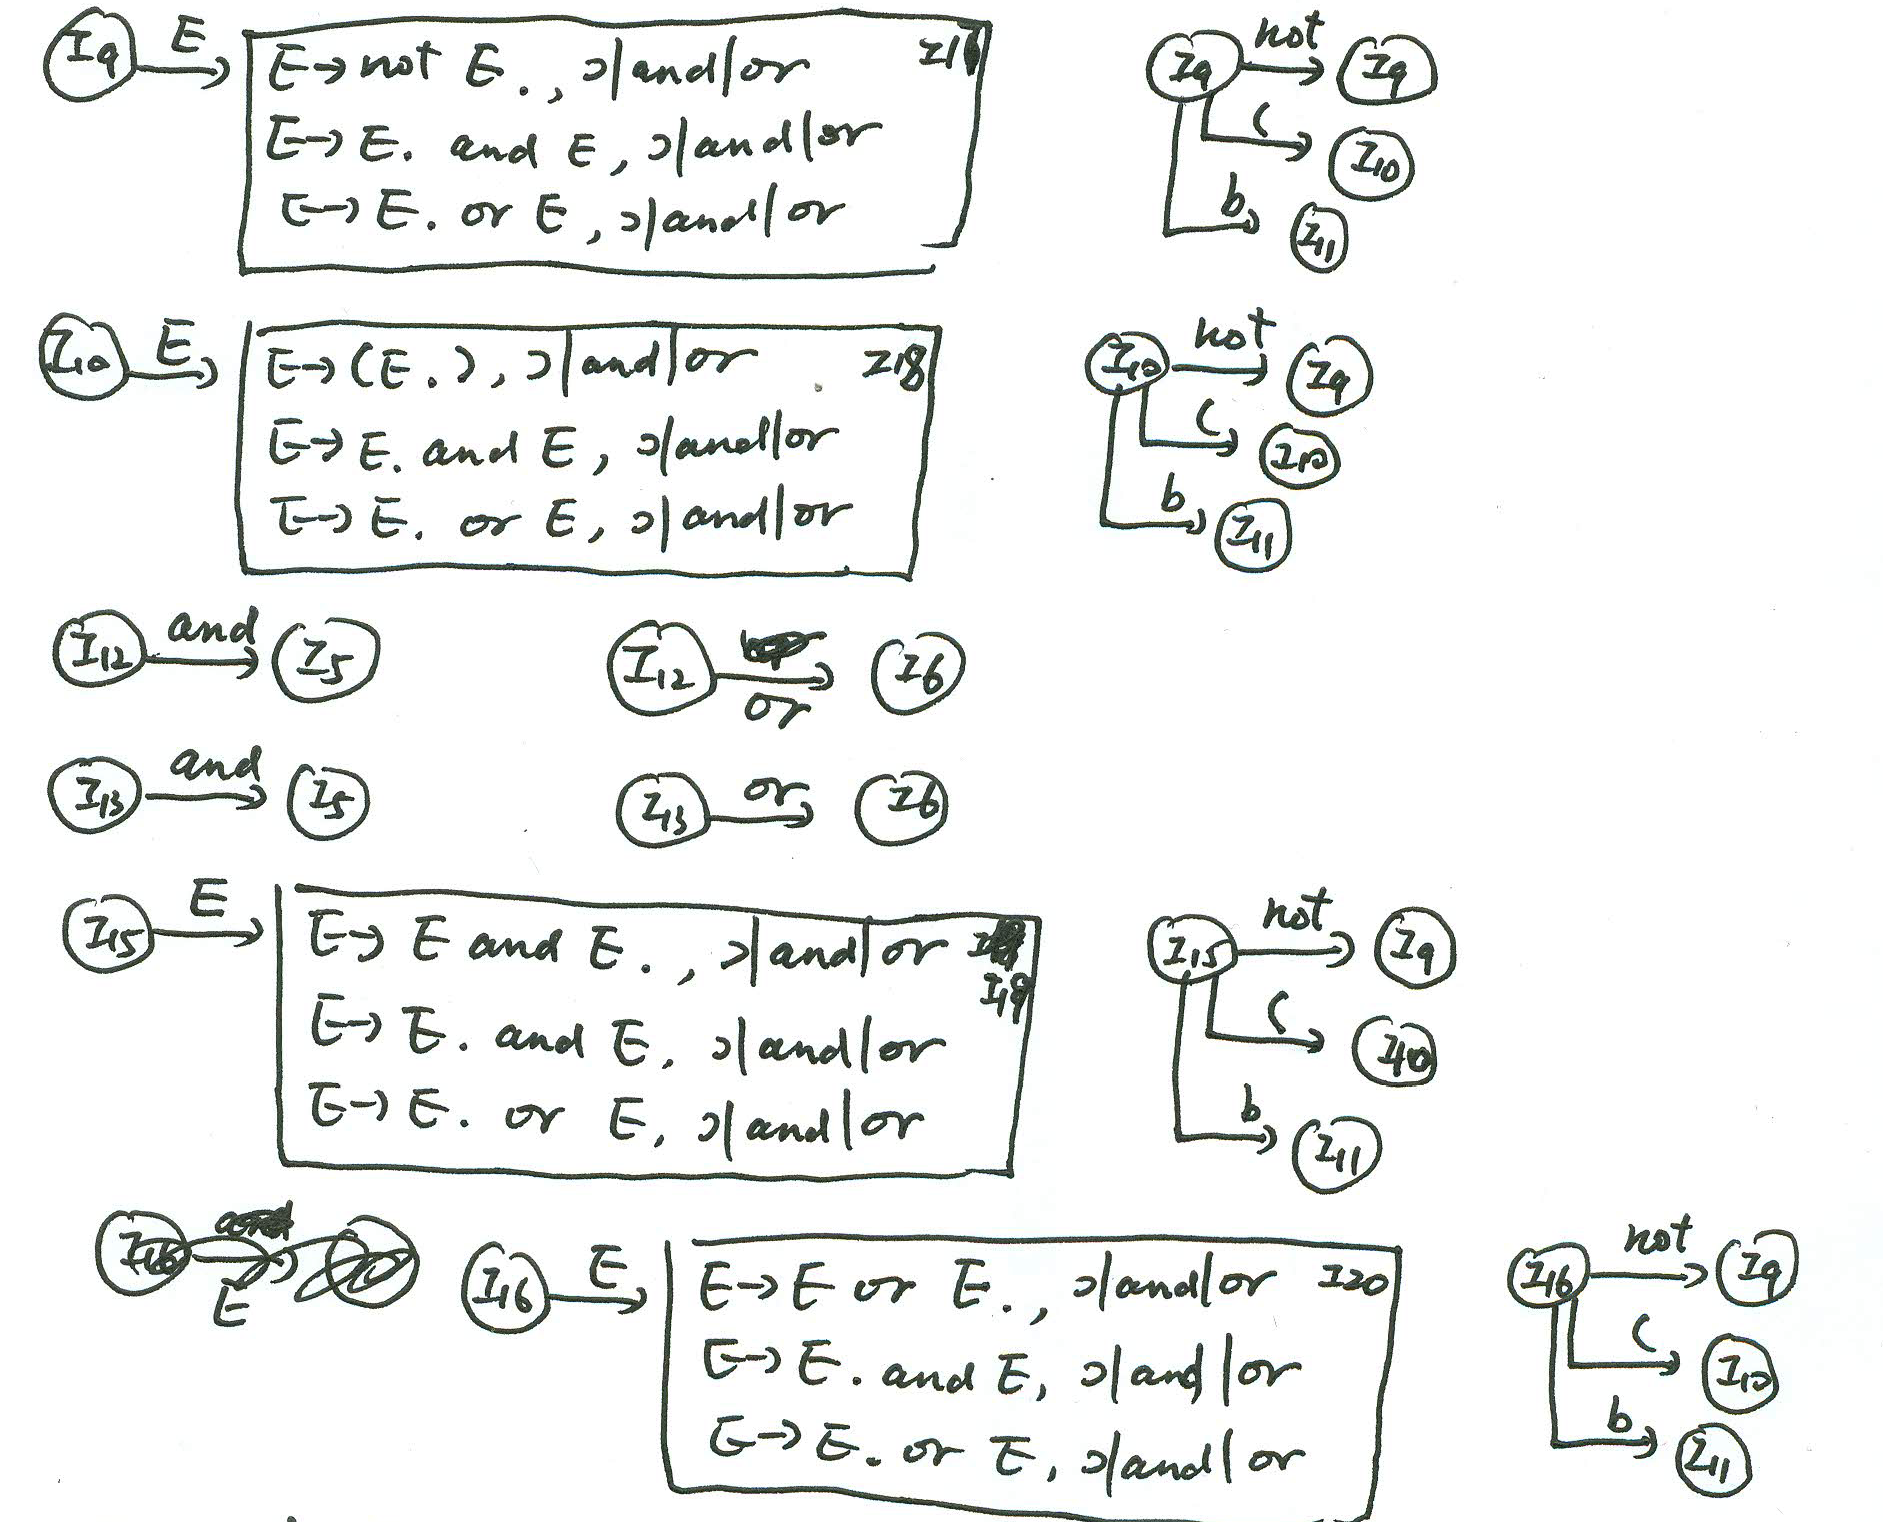 I9 E E→not E., )|and|or
E→E. and E, )|and|or
E→E. or E, )|and|or
I9 not I9
( I10
b I11
I10 E E→(E.), )|and|or I18
E→E. and E, )|and|or
E→E. or E, )|and|or
I10 not I9
( I10
b I11
I12 and I5 I12 or I6
I13 and I5 I13 or I6
I15 E E→E and E., )|and|or
I19
E→E. and E, )|and|or
E→E. or E, )|and|or
I15 not I9
( I10
b I11
I16 E
I16 E E→E or E., )|and|or I20
E→E. and E, )|and|or
E→E. or E, )|and|or
I16 not I9
( I10
b I11